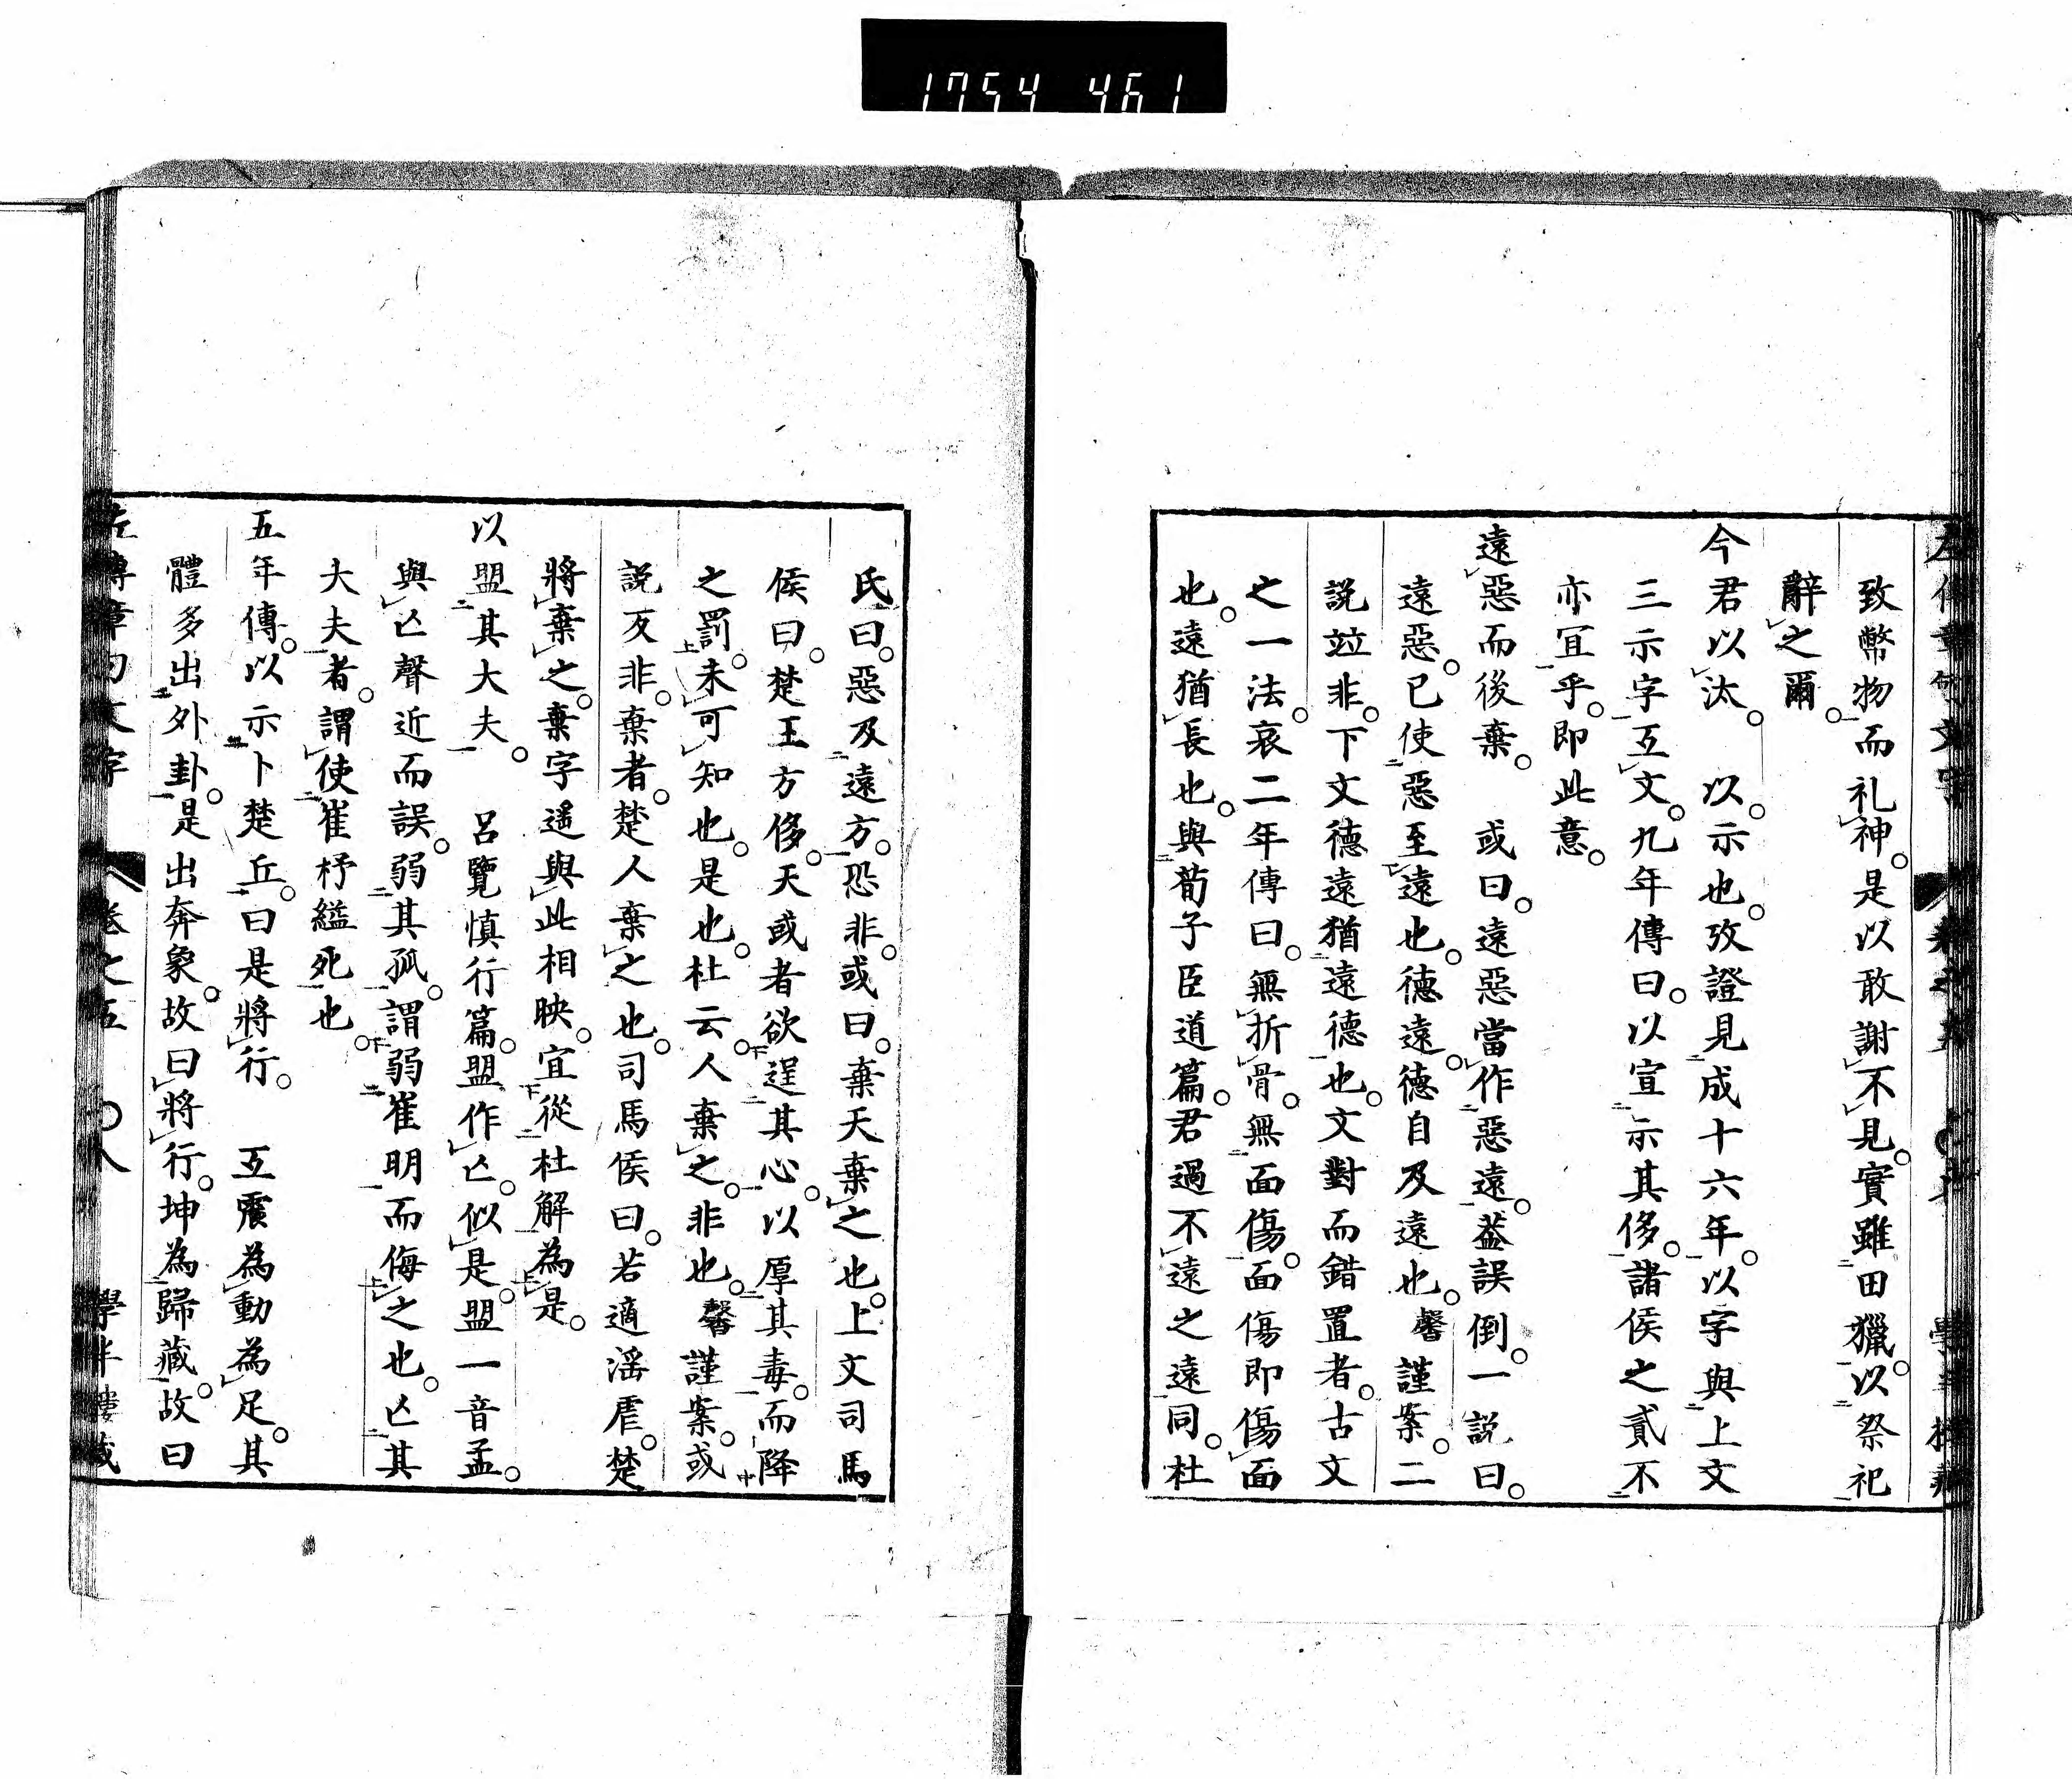 1754 461
致幣物而礼神。是以敢謝不見。實雖田獵。以祭祀
辭之爾。
今君以汰。 以。示也。攷證見成十六年。以字與上文
三示字互文。九年傳曰。以宣示其侈。諸侯之貳不
亦宜乎。即此意。
遠惡而後棄。 或曰。遠惡當作惡遠。葢誤倒。一説曰。
遠惡。已使惡至遠也。德遠。德自及遠也。馨謹案。二
説竝非。下文德遠猶遠德也。文對而錯置者。古文
之一法。哀二年傳曰。無折骨。無面傷。面傷即傷面
也。遠猶長也。與荀子臣道篇。君過不遠之遠同。杜
氏曰。惡及遠方。恐非。或曰。棄天棄之也。上文司馬
侯曰。楚王方侈。天或者欲逞其心。以厚其毒。而降
之罰。未可知也。是也。杜云。人棄之。非也。馨謹案。或
説反非。棄者。楚人棄之也。司馬侯曰。若適滛虐。楚
將棄之。棄字遥與此相映。宜從杜解為是。
以盟其大夫。 呂覽慎行篇。盟作亾。似是。盟一音孟。
與亾聲近而誤。弱其孤。謂弱崔明而侮之也。亾其
大夫者。謂使崔杼縊死也。
五年傳。以示卜楚丘。曰是將行。 互震為動為足。其
體多出外卦。是出奔象。故曰將行。坤為歸藏。故曰
左傳章句文字 卷之五 〇八 學半樓藏